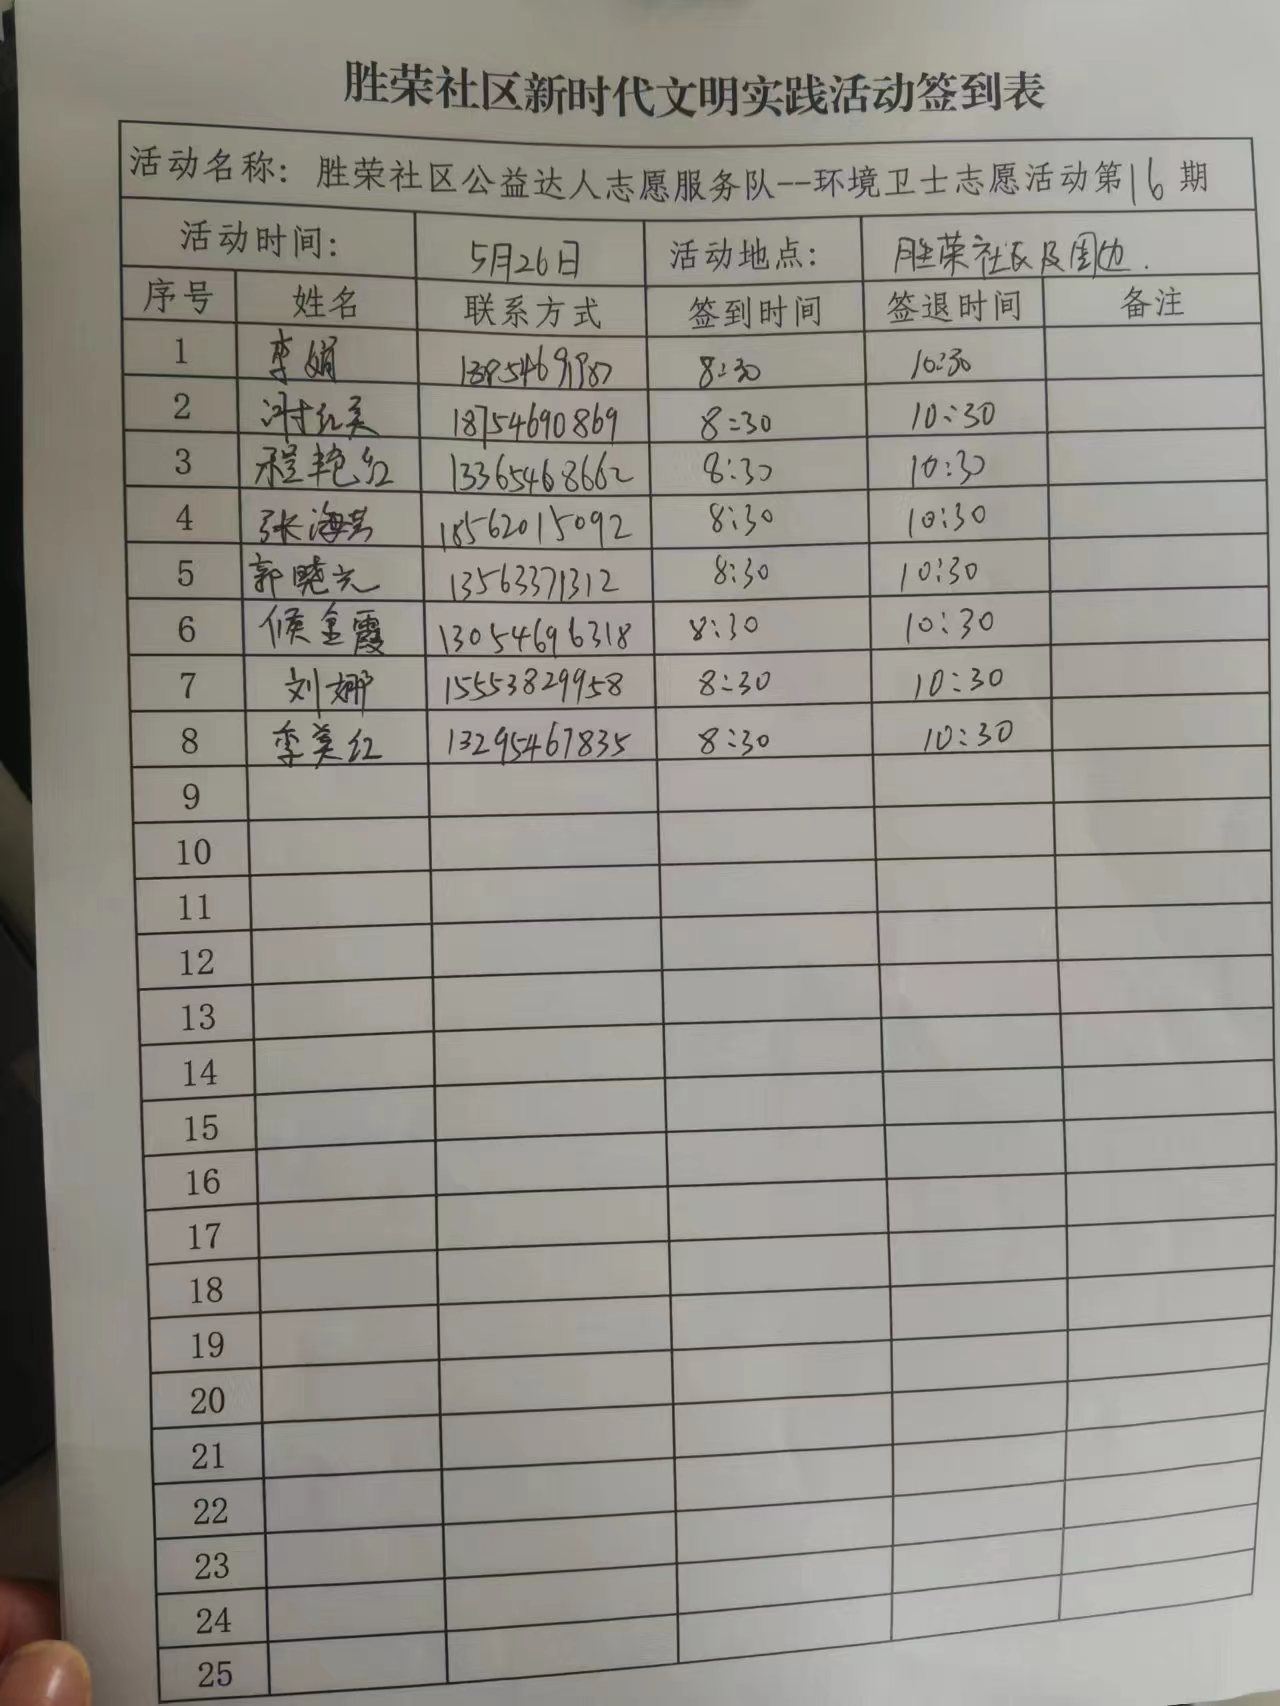 胜荣社区新时代文明实践活动签到表
活动名称：胜荣社区公益达人志愿服务队--环境卫士志愿活动第16期
活动时间： 5月26日 活动地点： 胜荣社区及周边.
序号 姓名 联系方式 签到时间 签退时间 备注
1 李娟 8:30 10:30
2 红英 18754690869 8:30 10:30
3 程艳红 13365468662 8:30 10:30
4 张海 18562015092 8:30 10:30
5 郭晓 13563371312 8:30 10:30
6 侯金霞 13054696318 8:30 10:30
7 刘娜 15553829958 8:30 10:30
8 李美红 13295467835 8:30 10:30
9
10
11
12
13
14
15
16
17
18
19
20
21
22
23
24
25